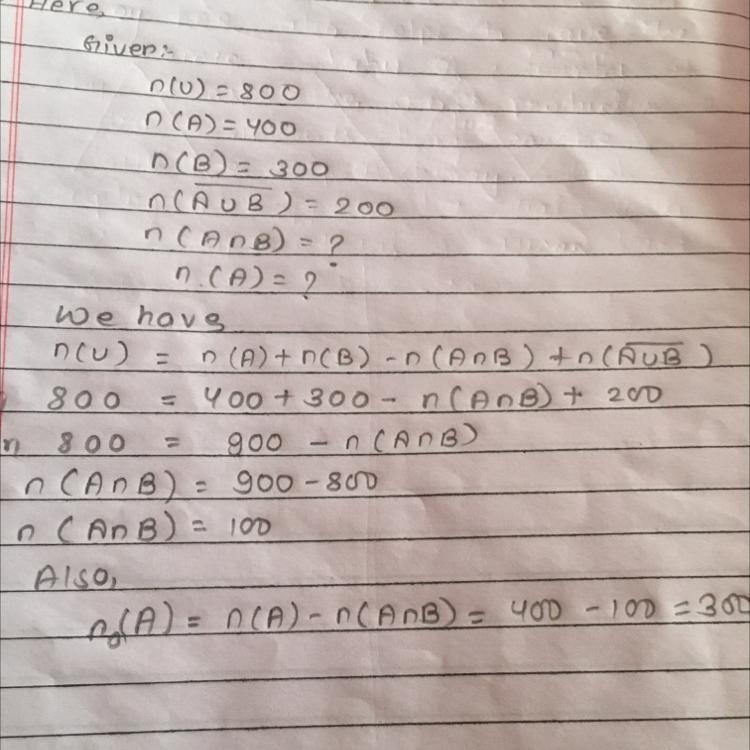 Here,
Given:-
n(U) = 800
n(A) = 400
n(B) = 300
n(A̅ ̅U̅ ̅B̅) = 200
n(A∩B) = ?
n.(A) = ?
We have
n(U) = n(A) + n(B) - n(A∩B) + n(A̅U̅B̅)
800 = 400 + 300 - n(A∩B) + 200
n 800 = 900 - n(A∩B)
n(A∩B) = 900 - 800
n(A∩B) = 100
Also,
n₀(A) = n(A) - n(A∩B) = 400 - 100 = 300